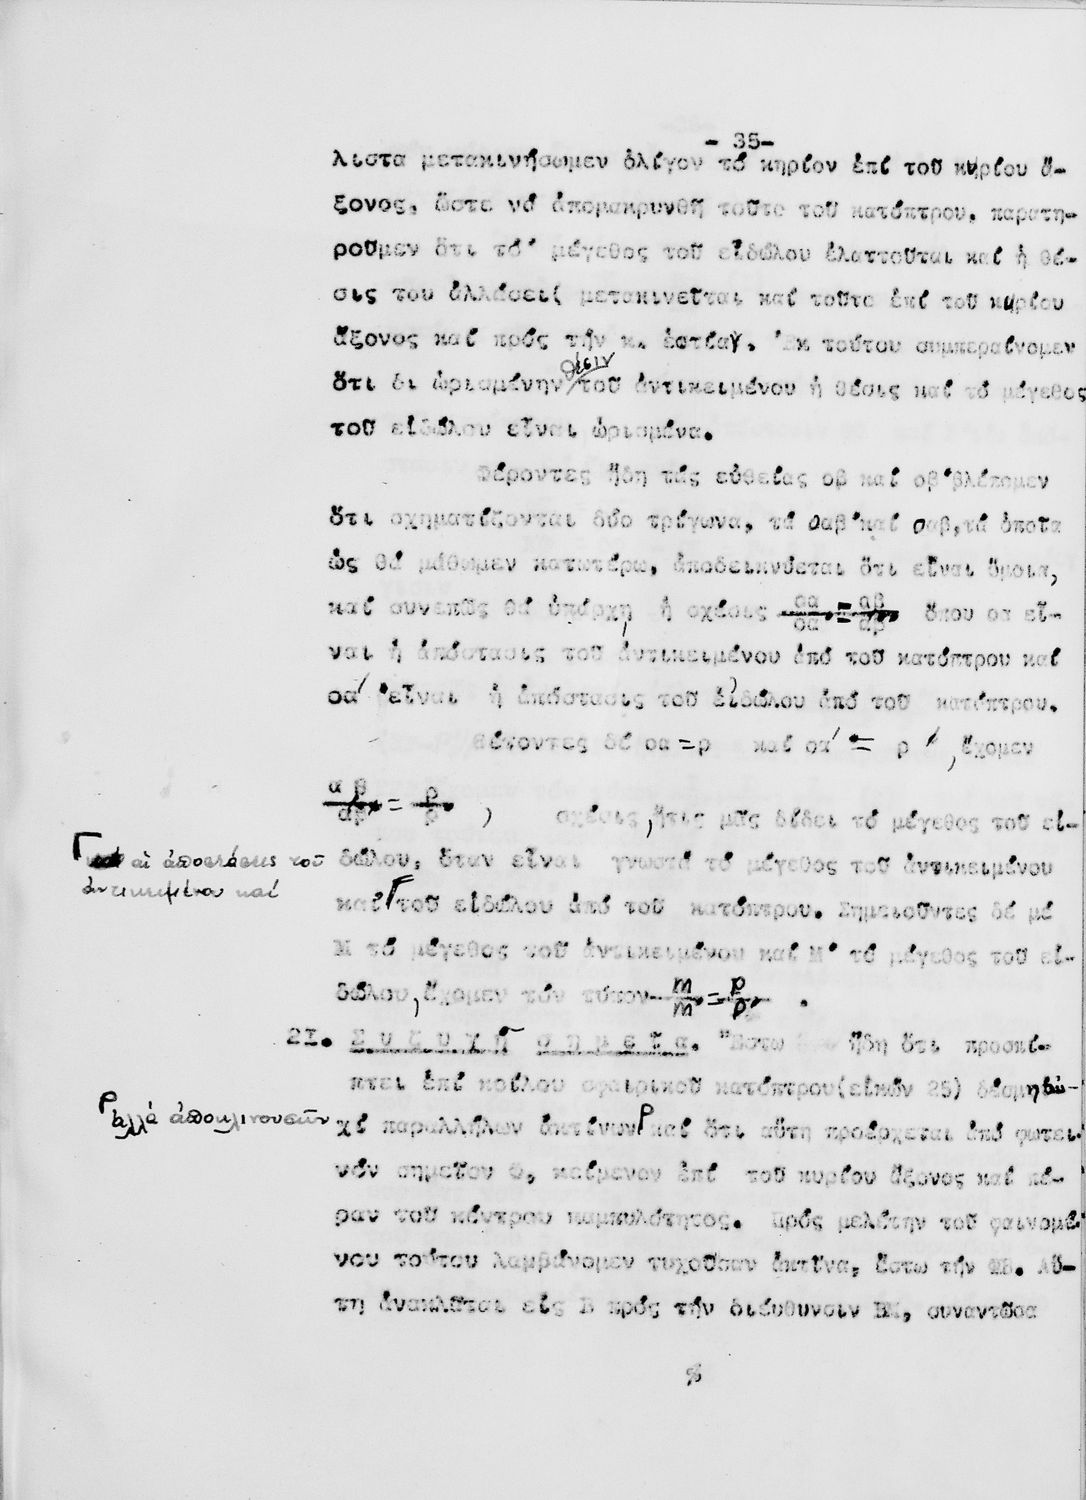 - 35-
λιστα μετακινήσωμεν ὀλίγον τό κηρίον ἐπί τοῦ κυρίου ἄ-
ξονος, ὥστε νά ἀπομακρυνθῆ τοῦτο τοῦ κατόπτρου, παρατη-
ροῦμεν ὅτι τό μέγεθος τοῦ εἰδώλου ἐλαττοῦται καί ἡ θέ-
σις του ἀλλάσει( μετακινεῖται καί τοῦτο ἐπί τοῦ κυρίου
ἄξονος καί πρός τήν κ. ἑστίαν. Ἐκ τούτου συμπεραίνομεν
θέσιν
ὅτι δι ὡρισμένην/τοῦ ἀντικειμένου ἡ θέσις καί τό μέγεθος
τοῦ εἰδώλου εἶναι ὡρισμένα.
Φέροντες ἤδη τάς εὐθείας οβ καί οβ'βλέπομεν
ὅτι σχηματίζονται δύο τρίγωνα, τά οαβ'καί οαβ,τά ὁποῖα
ὡς θά μάθωμεν κατωτέρω, ἀποδεικνύεται ὅτι εἶναι ὅμοια,
καί συνεπῶς θά ὑπάρχη ἡ σχέσις οα/οα' = αβ/αβ' ὅπου οα εἶ-
ναι ἡ ἀπόστασις τοῦ ἀντικειμένου ἀπό τοῦ κατόπτρου καί
οα' εἶναι ἡ ἀπόστασις τοῦ εἰδώλου ἀπό τοῦ κατόπτρου.
Θέτοντες δέ οα =ρ καί οα' = ρ ', ἔχομεν
αβ/αβ' = ρ/ρ' , σχέσις,ἥτις μᾶς δίδει τό μέγεθος τοῦ εἰ-
δώλου, ὅταν εἶναι γνωστά τό μέγεθος τοῦ ἀντικειμένου
αἱ ἀποστάσεις τοῦ
ἀντικειμένου καί
καί Γτοῦ εἰδώλου ἀπό τοῦ κατόπτρου. Σημειοῦντες δέ μέ
Μ τό μέγεθος τοῦ ἀντικειμένου καί Μ' τό μέγεθος τοῦ εἰ-
δώλου,ἔχομεν τόν τύπον m/m' = p/p' .
2Ι. Σ υ ζ υ γ ῆ σ η μ ε ῖ α. Ἔστω ἤδη ὅτι προσπί-
πτει ἐπί κοίλου σφαιρικοῦ κατόπτρου(εἰκών 25) δέσμη οὐ-
χί παραλλήλων ἀκτίνων καί ὅτι αὕτη προέρχεται ἀπό φωτει-
ἀλλά ἀποκλινουσῶν
νόν σημεῖον Φ, κείμενον ἐπί τοῦ κυρίου ἄξονος καί πέ-
ραν τοῦ κέντρου καμπυλότητος. Πρός μελέτην τοῦ φαινομέ-
νου τούτου λαμβάνομεν τυχοῦσαν ἀκτῖνα, ἔστω τήν ΦΒ. Αὕ-
τη ἀνακλᾶται εἰς Β πρός τήν διεύθυνσιν ΒΚ, συναντῶσα